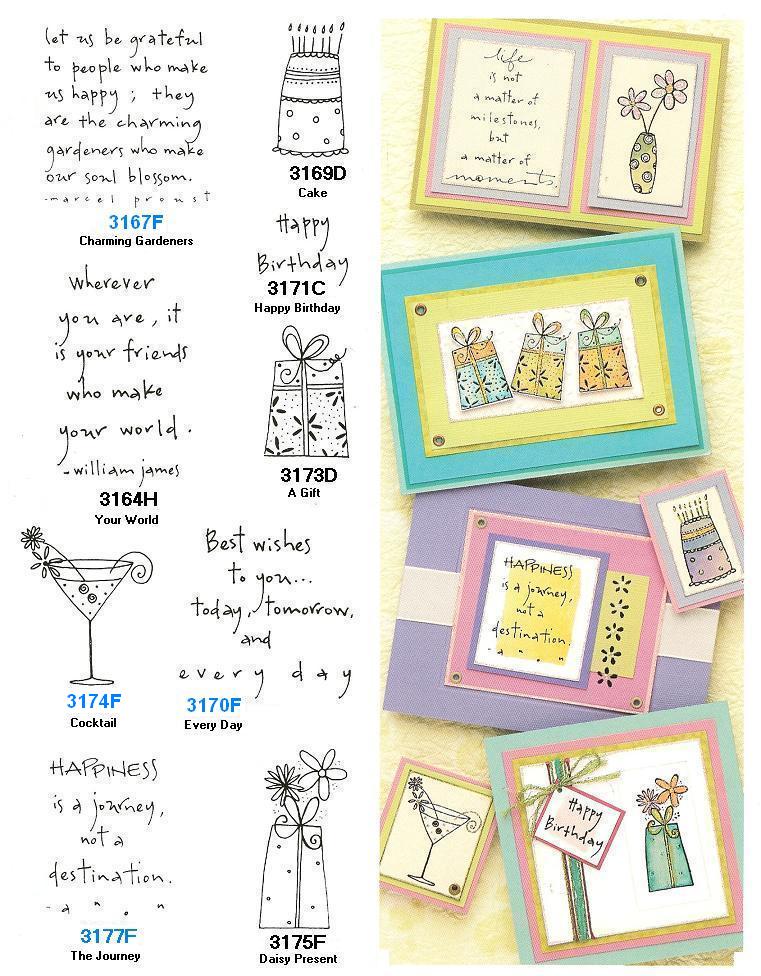 let us be grateful
to people who make
us happy ; they
are the charming
gardeners who make
our soul blossom.
-marcel proust
3167F
Charming Gardeners
3169D
Cake
Happy
Birthday
3171C
Happy Birthday
wherever
you are, it
is your friends
who make
your world.
-william james
3164H
Your World
3173D
A Gift
3174F
Cocktail
Best wishes
to you...
today, tomorrow,
and
every day
3170F
Every Day
HAPPINESS
is a journey,
not a
destination.
3177F
The Journey
3175F
Daisy Present
life
is not
a matter of
milestones,
but
a matter of
moments.
HAPPINESS
is a journey,
not a
destination.
Happy
Birthday